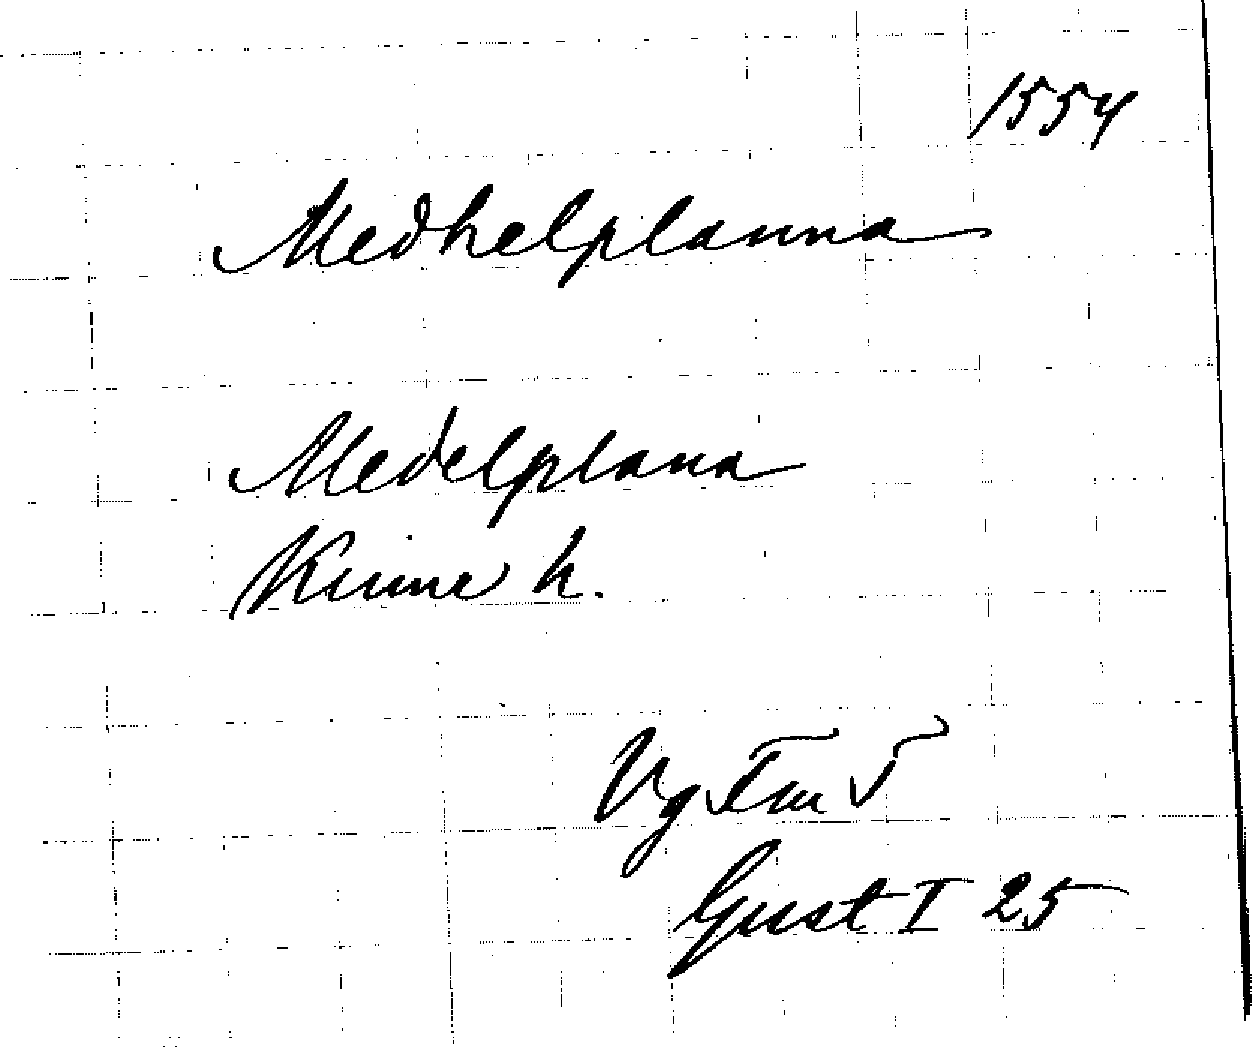 1554
Medhelplanna
Medelplana
Kinne h.
Vg Fm 5
Gust I 25